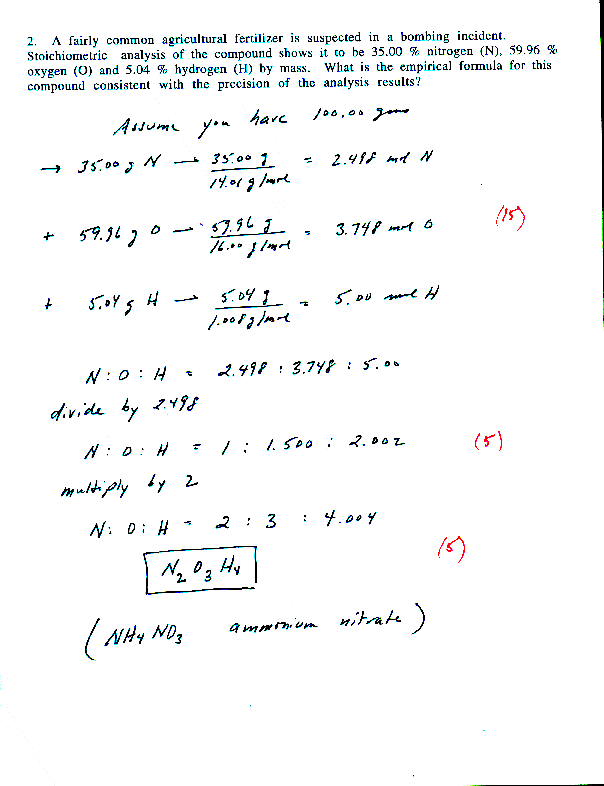 2. A fairly common agricultural fertilizer is suspected in a bombing incident.
Stoichiometric analysis of the compound shows it to be 35.00 % nitrogen (N), 59.96 %
oxygen (O) and 5.04 % hydrogen (H) by mass. What is the empirical formula for this
compound consistent with the precision of the analysis results?
Assume you have 100.00 grams
→ 35.00 g N → 35.00 g / 14.01 g/mol = 2.498 mol N
+ 59.96 g O → 59.96 g / 16.00 g/mol = 3.748 mol O (15)
+ 5.04 g H → 5.04 g / 1.008 g/mol = 5.00 mol H
N : O : H = 2.498 : 3.748 : 5.00
divide by 2.498
N : O : H = 1 : 1.500 : 2.002 (5)
multiply by 2
N : O : H = 2 : 3 : 4.004
N₂O₃H₄ (5)
(NH₄NO₃ ammonium nitrate)